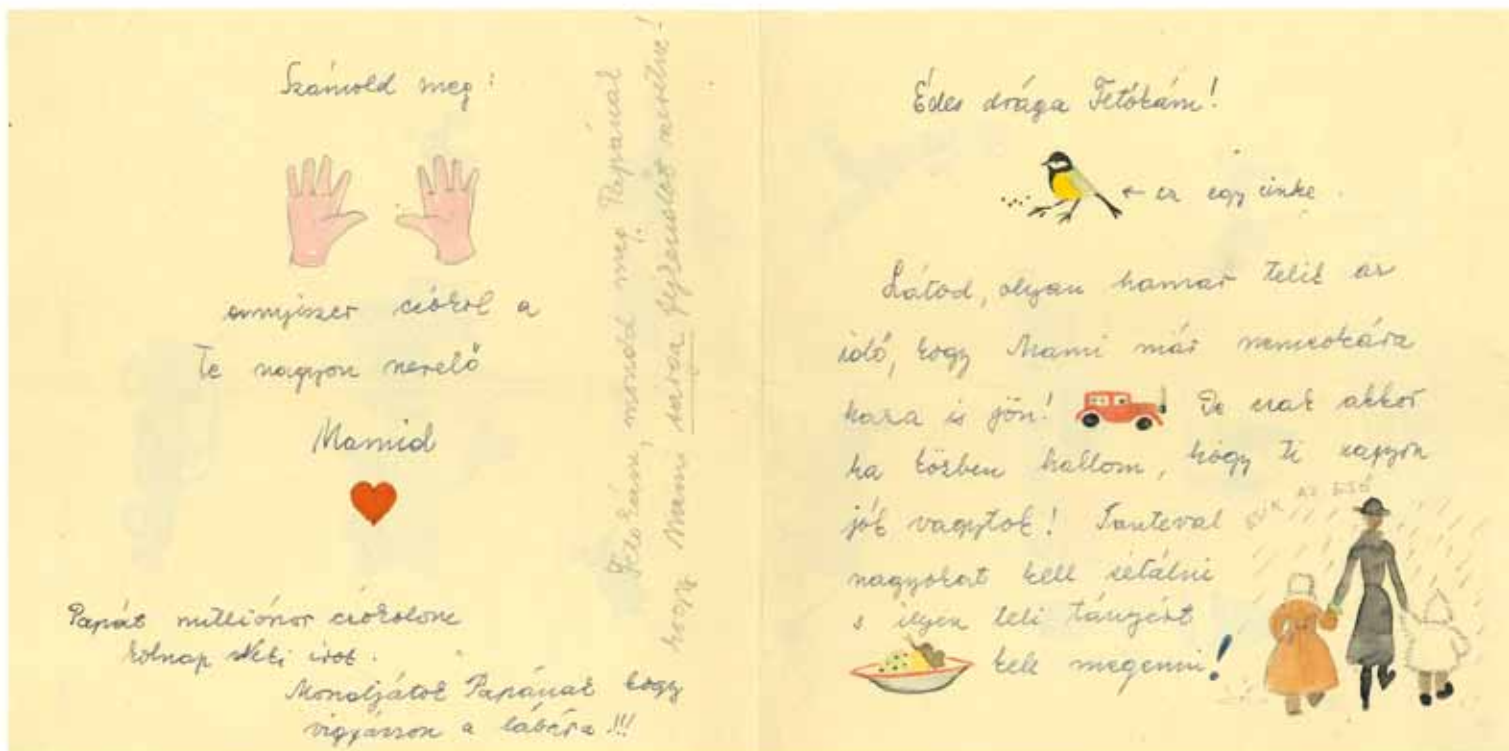 Számold meg:
annyiszor csókol a
Te nagyon szerető
Mamid
Papát milliószor csókolom
holnap Neki írok.
Mondjátok Papának hogy
vigyázzon a lábára!!!
Tetókám, mondd meg Papának
hogy Mami sárga fejkendőt szeretne!
Édes drága Tetókám!
← ez egy cinke.
Látod, olyan hamar telik az
idő, hogy Mami már nemsokára
haza is jön! De csak akkor
ha közben hallom, hogy ti nagyon
jók vagytok! Tanteval
ESIK AZ ESŐ
nagyokat kell sétálni
s ilyen teli tányért
kell megenni!